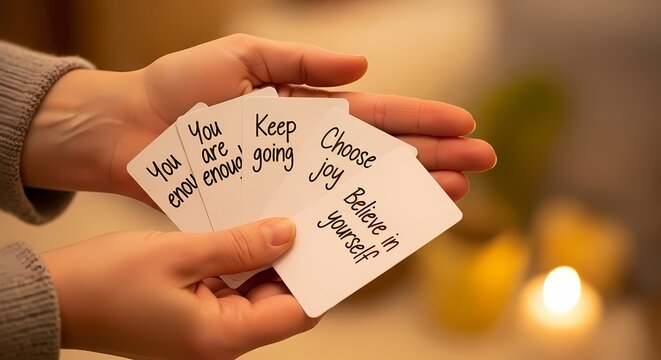 You
enou
You
are
enou
Keep
going
Choose
joy
Believe in
yourself